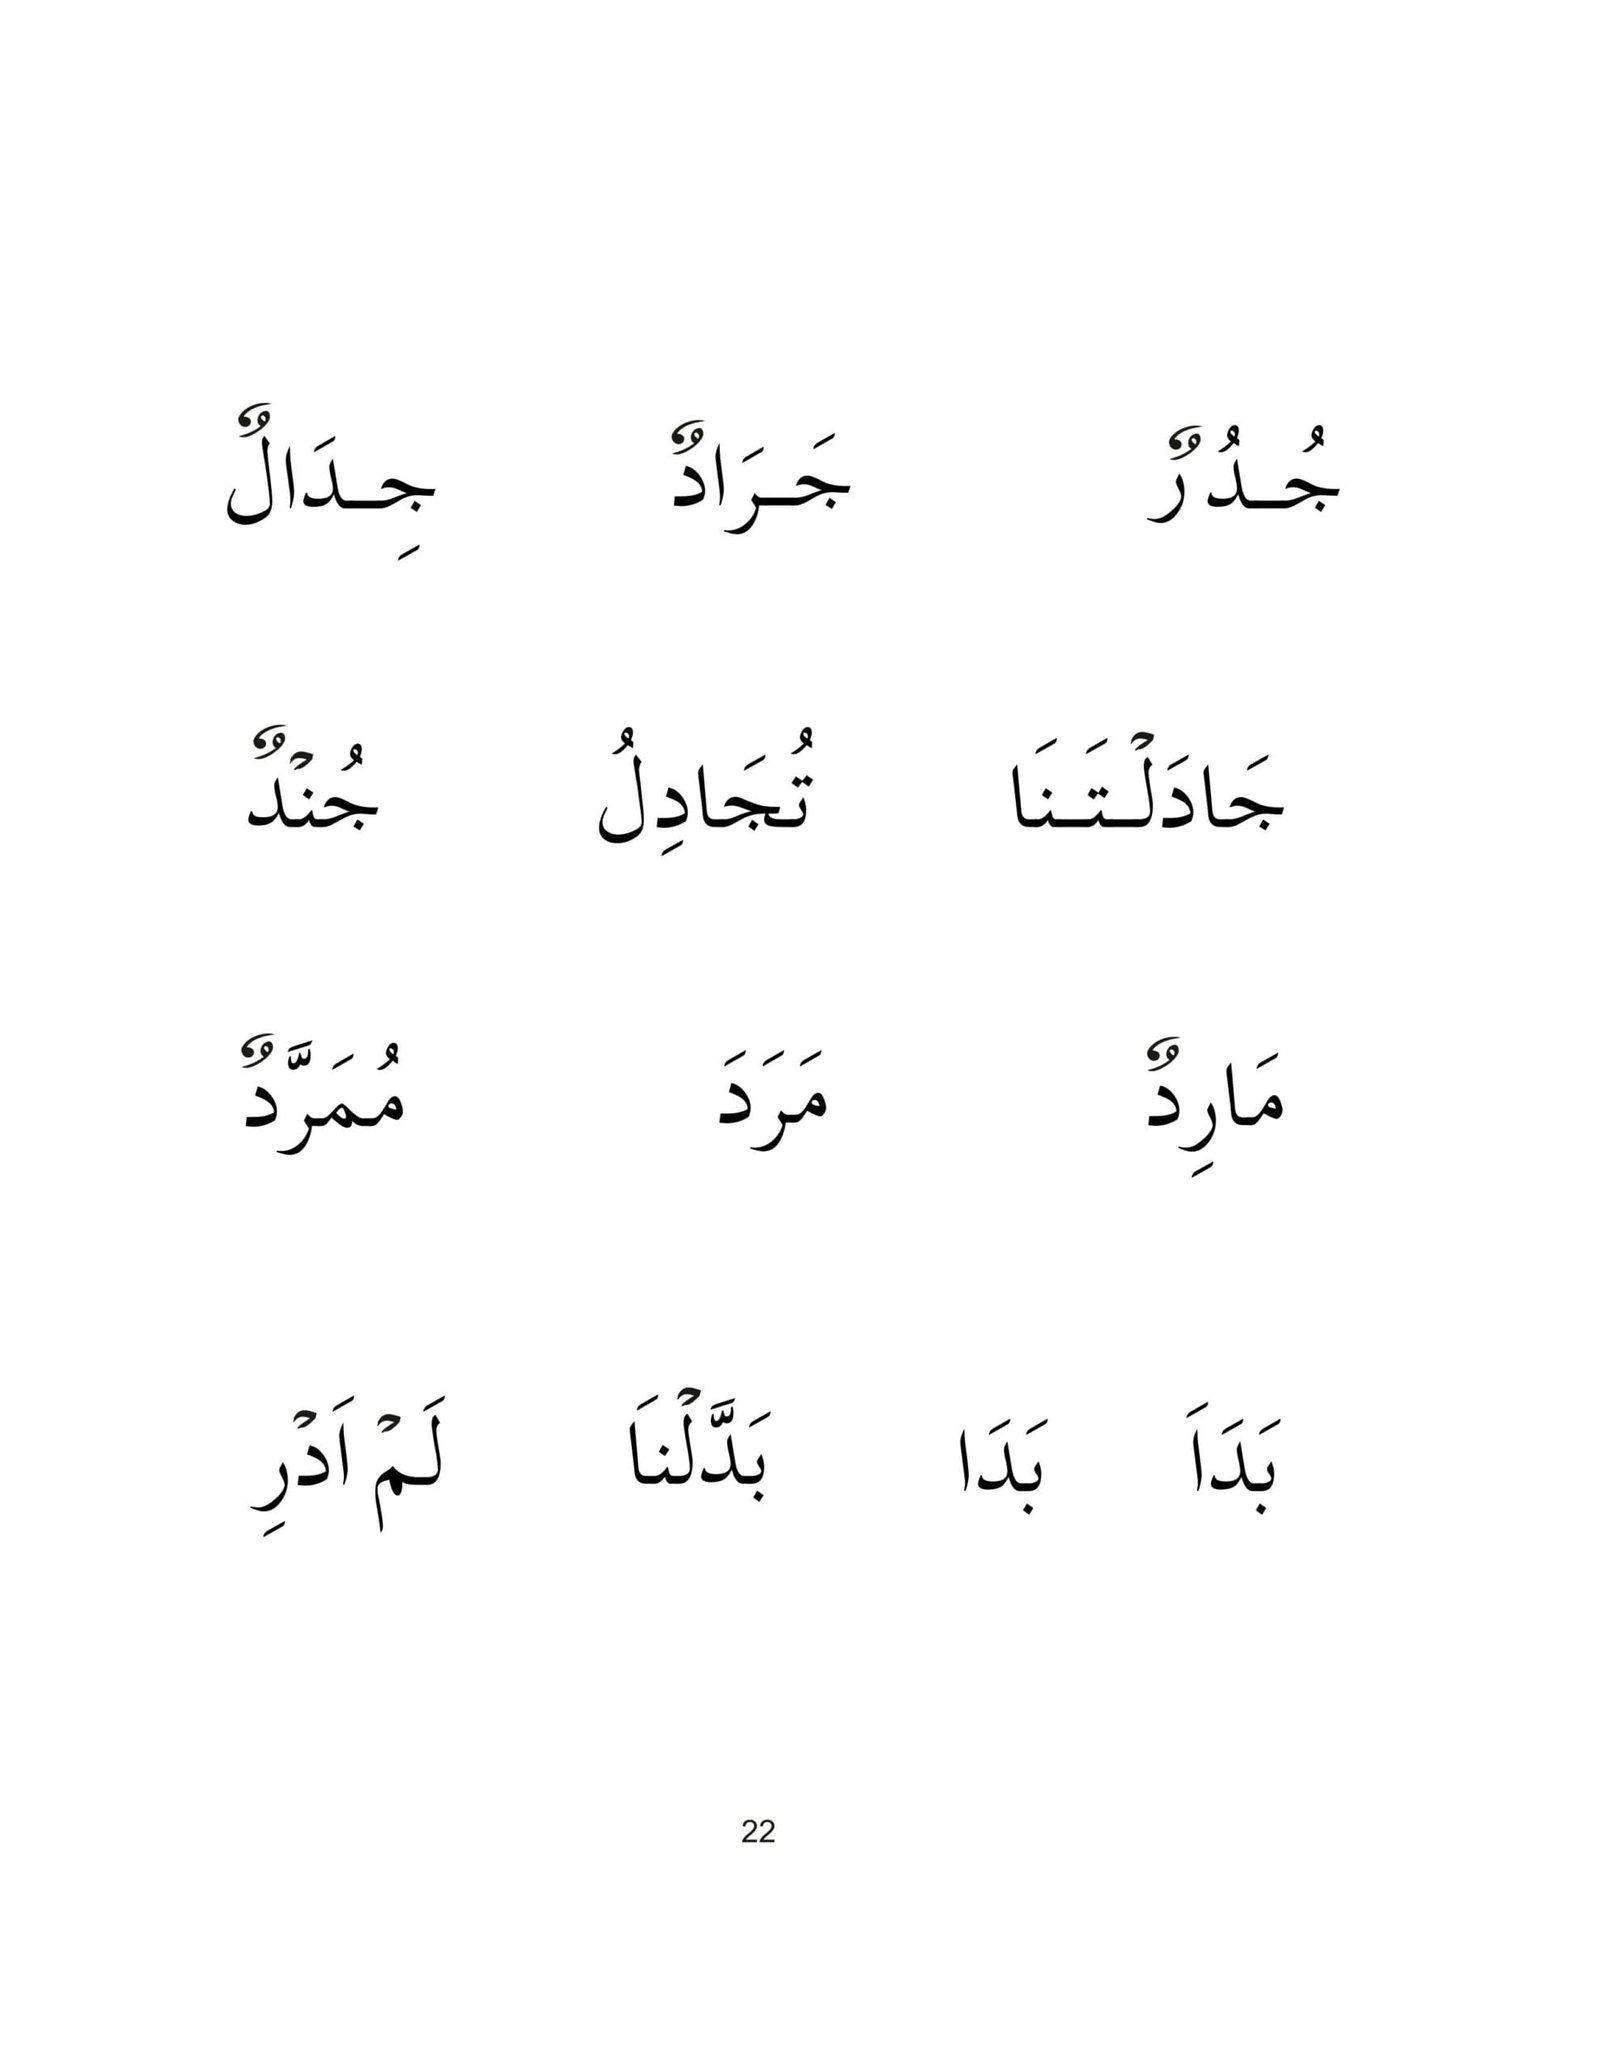 جُـدُرٌ جَـرَادٌ جِـدَالٌ
جَادَلْـتَـنَا تُجَادِلُ جُنْدٌ
مَارِدٌ مَرَدَ مُمَرَّدٌ
بَدَاَ بَدَا بَدَّلْنَا لَمْ اَدْرِ
22